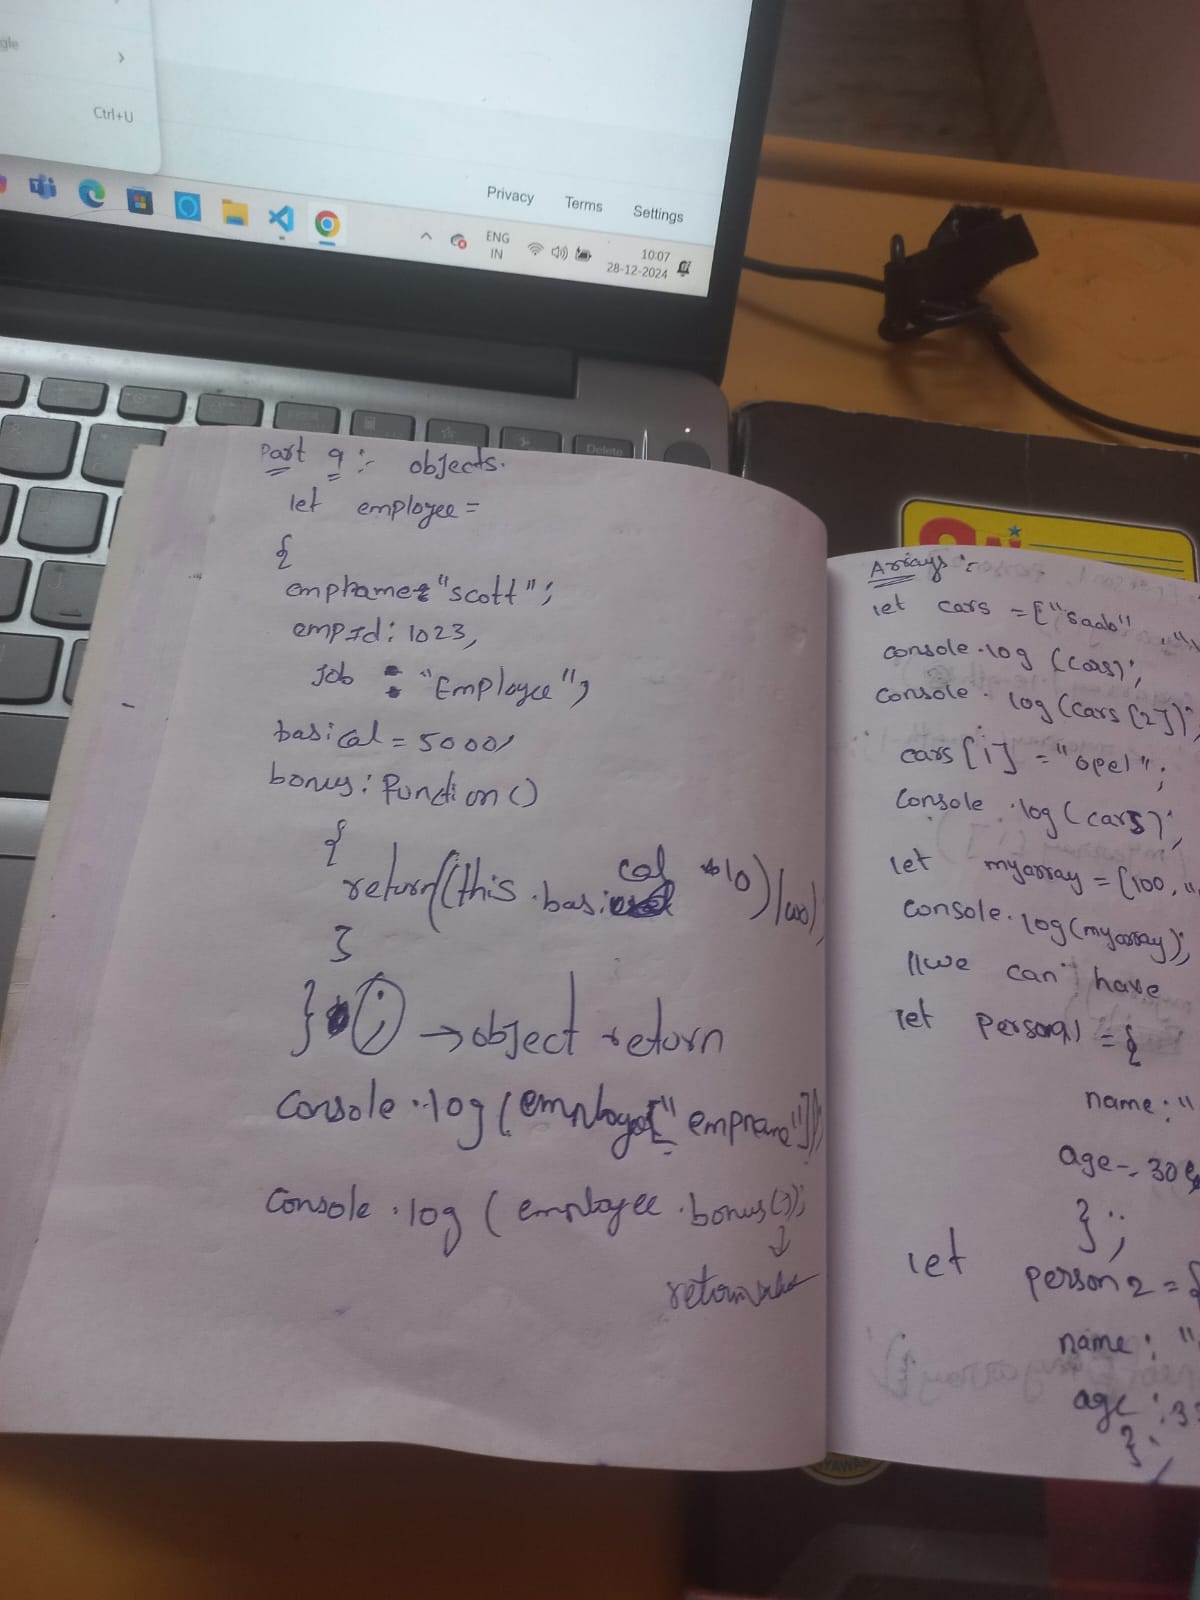 gle
Ctrl+U
Privacy Terms Settings
ENG
IN
10:07
28-12-2024
Delete
Part 9 :- objects.
let employee =
{
empname: "scott";
empId: 1023,
Job : "Employee",
basical = 5000,
bonus: function()
{
return((this.basical *10)/100);
}
} ; → object return
Console.log(employee["empname"]);
Console.log(employee.bonus());
↓
return value
Arrays :-
let cars = ["saab"
console.log (cars);
console.log(cars[2]);
cars[i] = "opel";
Console.log(cars);
let myarray = [100, "
console.log(myarray);
//we can have
let person1 = {
name: "
age: 30
};
let person2 = {
name: "
age: 3
};